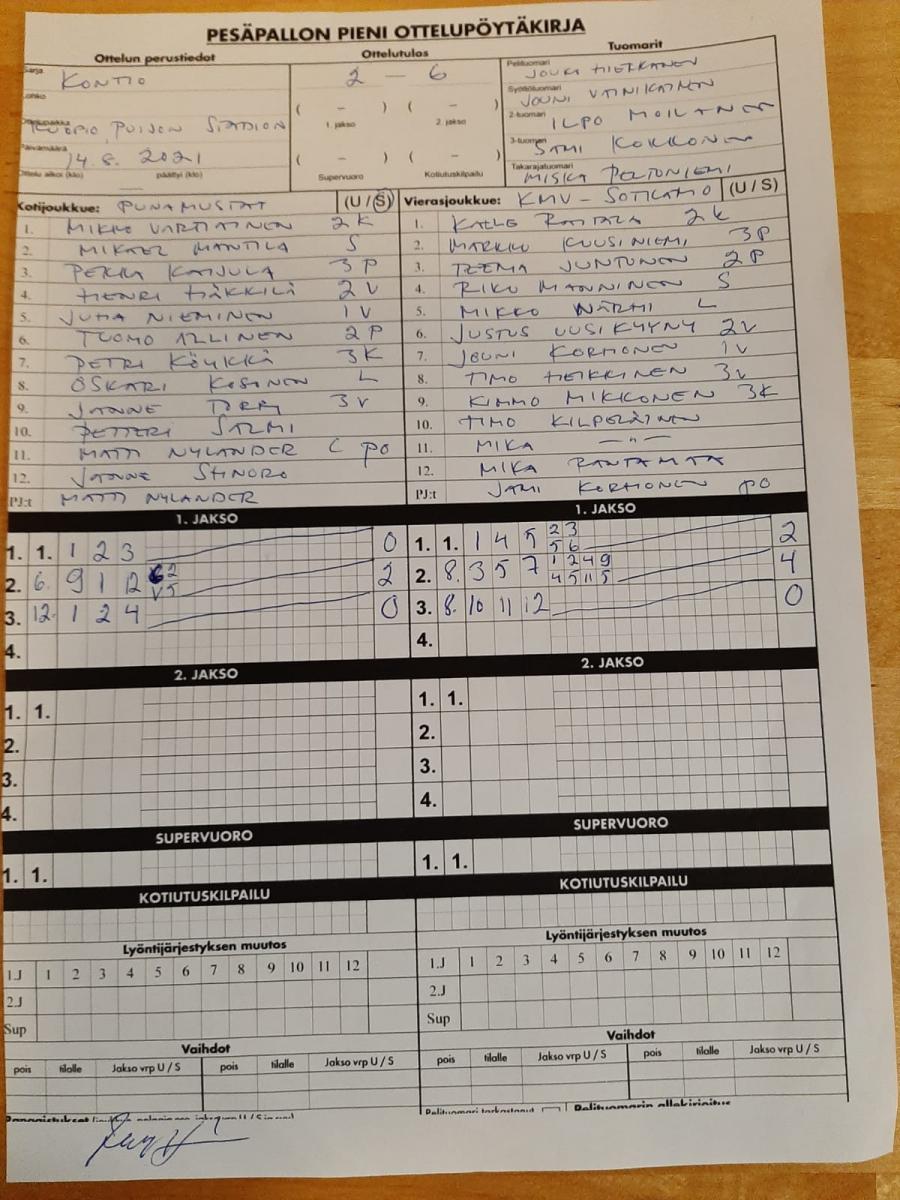 PESÄPALLON PIENI OTTELUPÖYTÄKIRJA
Ottelun perustiedot
Sarja KONTIO
Lohko
KUOPIO PUIJON STADION
Päivämäärä 14.8. 2021
Ottelu alkoi (klo) päättyi (klo)
Ottelutulos
2 – 6
( – ) ( – )
1. jakso 2. jakso
( – ) ( – )
Supervuoro Kotiutuskilpailu
Tuomarit
Pelituomari JOUKO HEIKKANEN
Syöttötuomari JOUNI VAINIKAINEN
2-tuomari ILPO MOILANEN
3-tuomari SAMI KOKKONEN
Takarajatuomari MISKA PELTONIEMI
Kotijoukkue: PUNAMUSTAT (U / S)
1. MIKKO VARTIAINEN 2K
2. MIKAEL MANTILA S
3. PEKKA KAIJULA 3P
4. HENRI HÄKKILÄ 2V
5. JUHA NIEMINEN 1V
6. TUOMO ALLINEN 2P
7. PETRI KÖYKKÄ 3K
8. OSKARI KOSONEN L
9. JANNE TORRI 3V
10. PETTERI SALMI
11. MATTI NYLANDER C PO
12. JANNE STINORO
PJ:t MATTI NYLANDER
Vierasjoukkue: KMV - SOTKAMO (U / S)
1. KALLE RAITALA 2K
2. MARKKU KUUSINIEMI 3P
3. TEEMA JUNTUNEN 2P
4. RIKU MANNINEN S
5. MIKKO WÄRMI L
6. JUSTUS UUSIKYYNY 2V
7. JOUNI KORHONEN 1V
8. TIMO HEIKKINEN 3V
9. KIMMO MIKKONEN 3K
10. TIMO KILPELÄINEN
11. MIKA — " —
12. MIKA RANTAMAA
PJ:t JAMI KORHONEN PO
1. JAKSO
1. 1. 1 2 3 0
2. 6. 9 1 12 2
3. 12. 1 2 4 0
4.
1. JAKSO
1. 1. 1 4 5 2 3 2
5 6
2. 8. 3 5 7 1 2 4 9 4
4 5 11 5
3. 8. 10 11 12 0
4.
2. JAKSO
1. 1.
2.
3.
4.
2. JAKSO
1. 1.
2.
3.
4.
SUPERVUORO
1. 1.
SUPERVUORO
1. 1.
KOTIUTUSKILPAILU
KOTIUTUSKILPAILU
Lyöntijärjestyksen muutos
1.J 1 2 3 4 5 6 7 8 9 10 11 12
2.J
Sup
Lyöntijärjestyksen muutos
1.J 1 2 3 4 5 6 7 8 9 10 11 12
2.J
Sup
Vaihdot
pois tilalle Jakso vrp U / S pois tilalle Jakso vrp U / S
Vaihdot
pois tilalle Jakso vrp U / S pois tilalle Jakso vrp U / S
Pelituomari tarkastanut Pelituomarin allekirjoitus